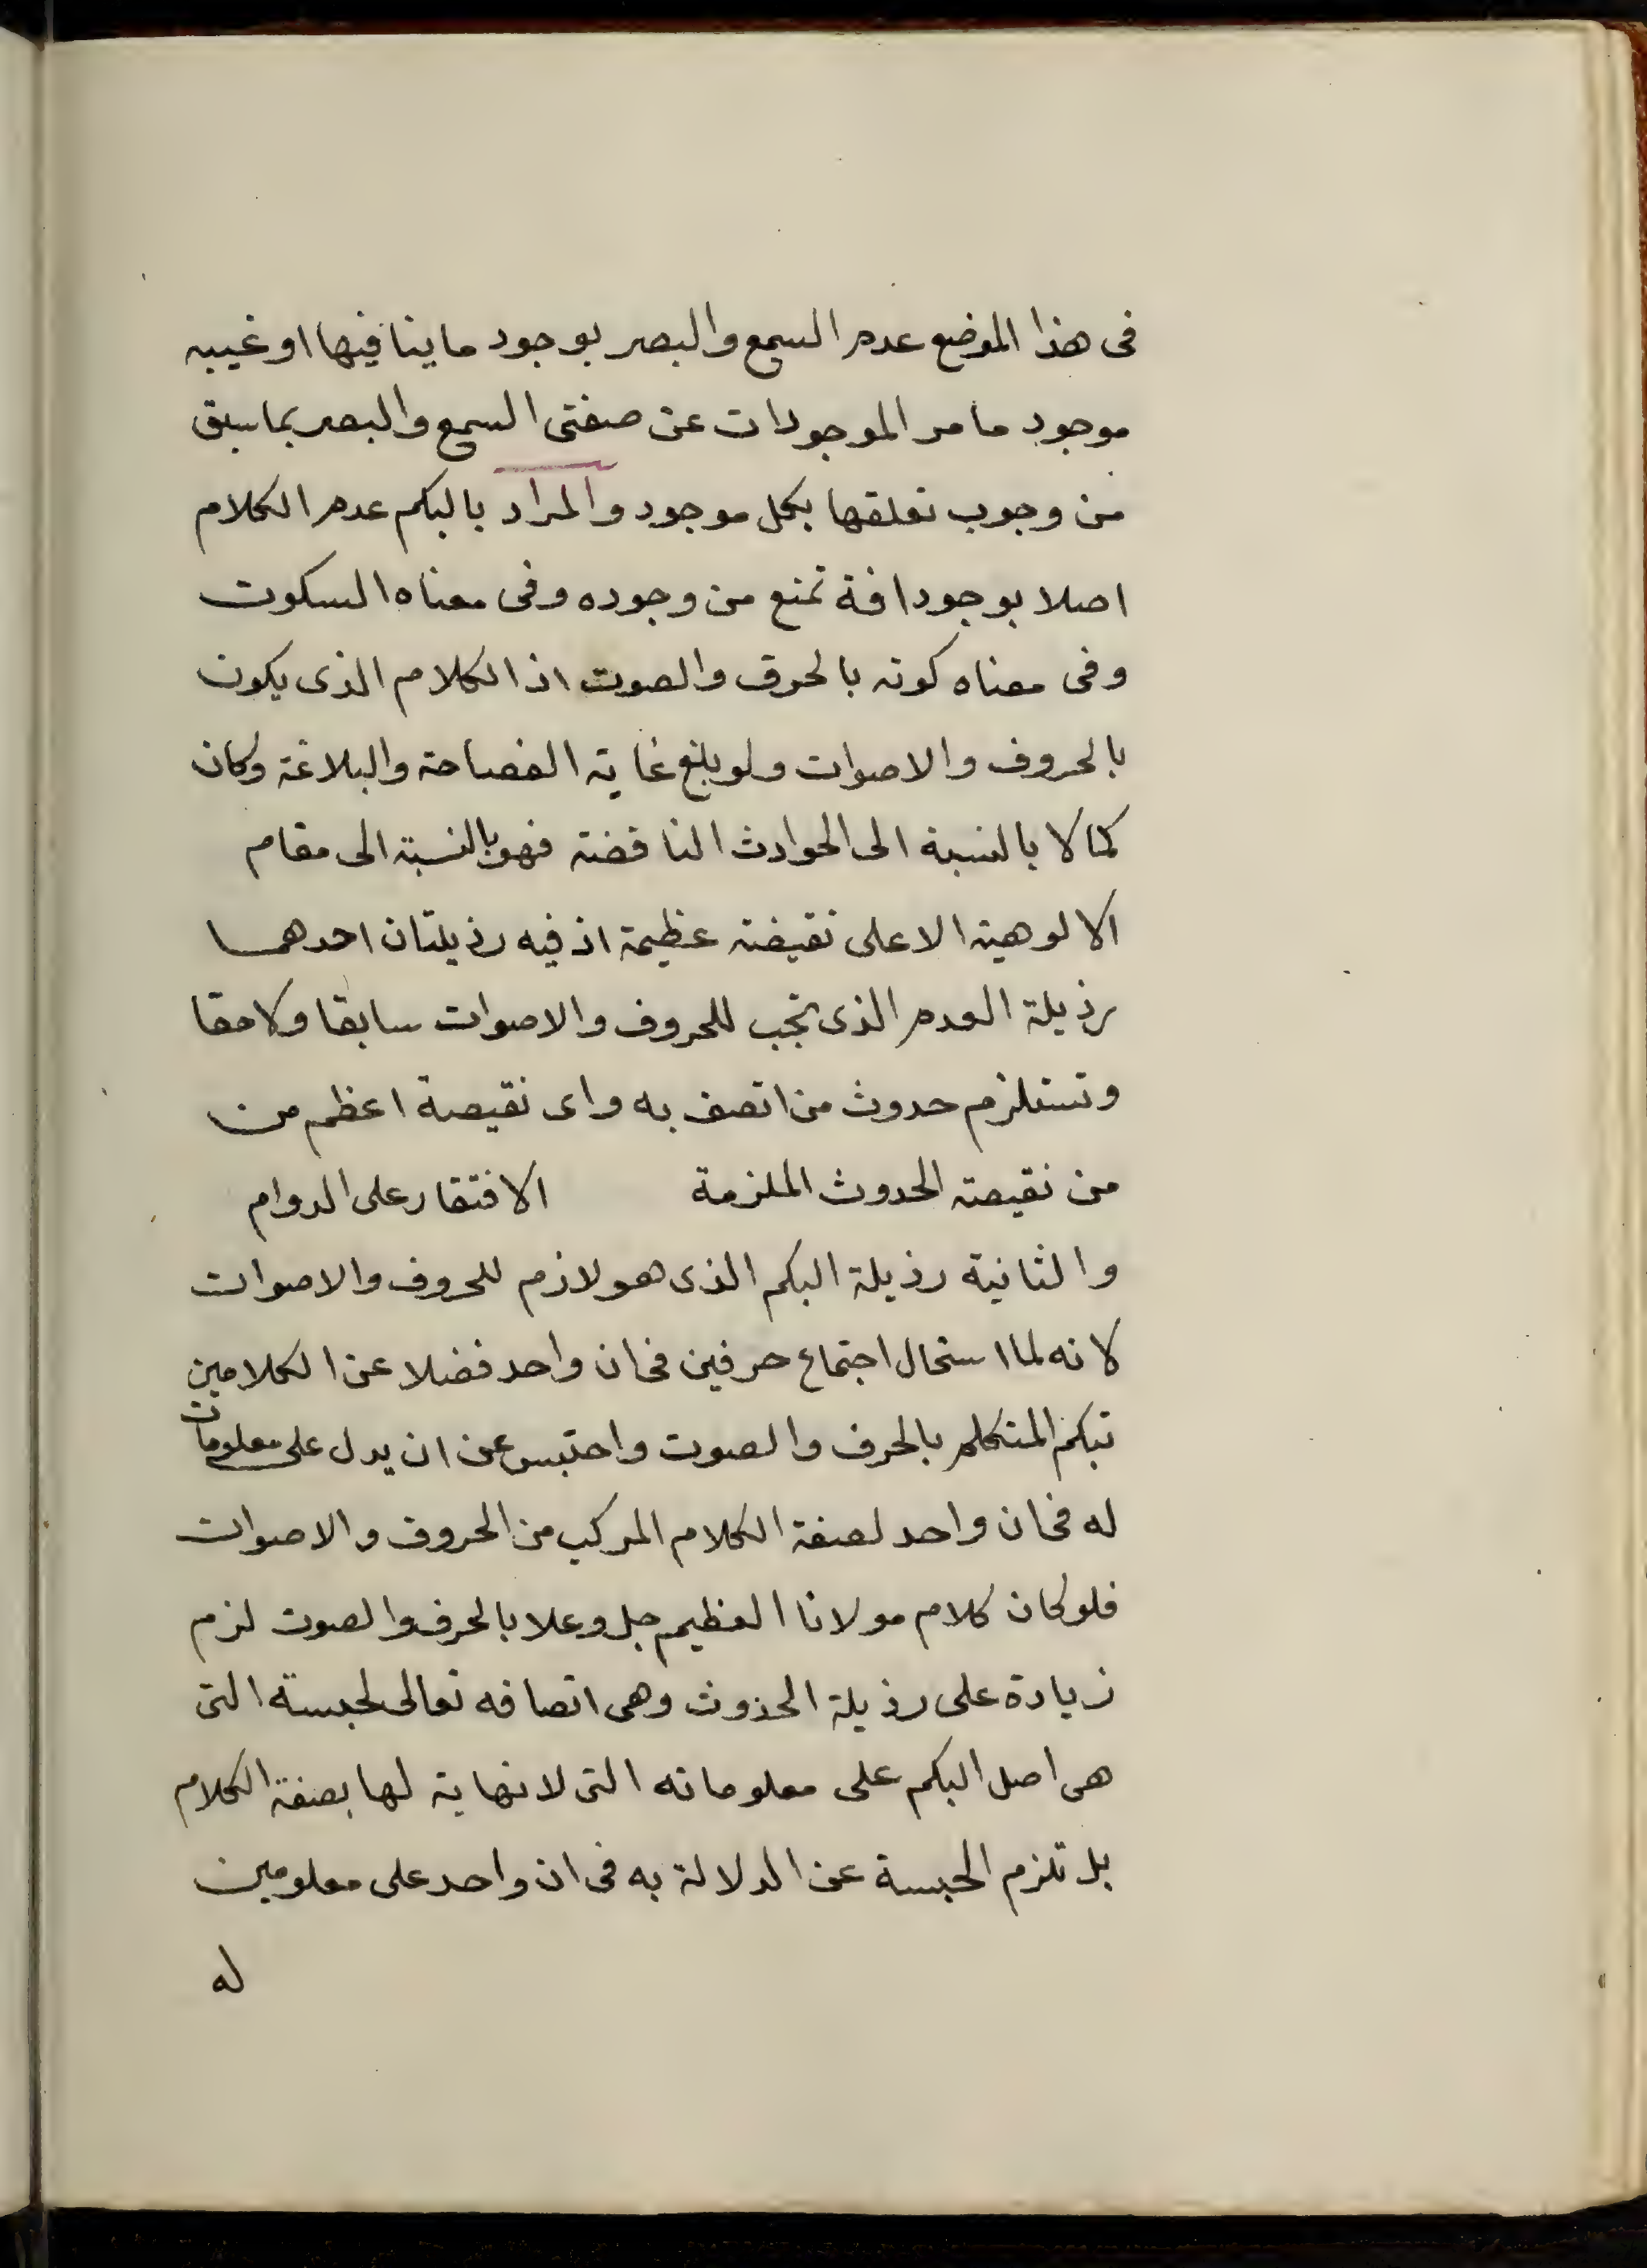 فى هذا الموضع عدم السمع والبصر بوجود ما ينافيها او غيبه
موجود ما مر الموجودات عن صفتى السمع والبصر بما سبق
من وجوب تعلقها بكل موجود والمراد بالبكم عدم الكلام
اصلا بوجود افة تمنع من وجوده وفى معناه السكوت
وفى معناه كونه بالحرف والصوت اذ الكلام الذى يكون
بالحروف والاصوات ولو بلغ غاية الفصاحة والبلاغة وكان
كمالا بالنسبة الى الحوادث الناقضة فهو بالنسبة الى مقام
الالوهية الاعلى نقيضة عظيمة اذ فيه رذيلتان احدهما
رذيلة العدم الذى تجب للحروف والاصوات سابقا ولاحقا
وتستلزم حدوث من اتصف به واى نقيصة اعظم من
من نقيصة الحدوث الملزمة الافتقار على الدوام
والثانية رذيلة البكم الذى هو لازم للحروف والاصوات
لانه لما استحال اجتماع حرفين فى ان واحد فضلا عن الكلامين
تبكم المتكلم بالحرف والصوت واحتبس عن ان يدل على معلومات
له فى ان واحد لصفة الكلام المركب من الحروف والاصوات
فلو كان كلام مولانا العظيم جل وعلا بالحرف والصوت لزم
زيادة على رذيلة الحذوث وهى اتصافه تعالى لحبسة التى
هى اصل البكم على معلوماته التى لانهاية لها بصفة الكلام
بل تلزم الحبسة عن الدلالة به فى ان واحد على معلومين
له